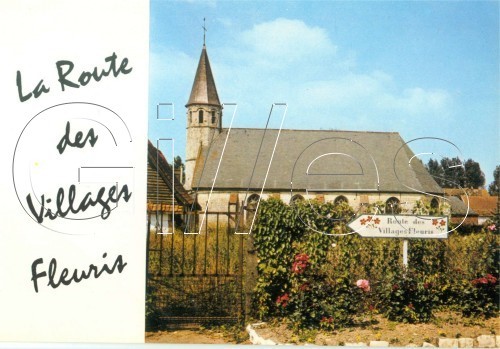 La Route
des
Villages
Fleuris
Gilles
Route des
Villages Fleuris